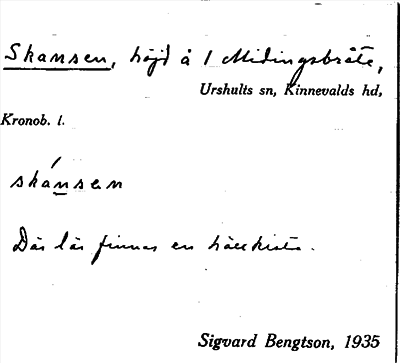 Skansen, höjd å 1 Midingsbråte,
Urshults sn, Kinnevalds hd,
Kronob. l.
skánsen
Där lär finnas en hällkista.
Sigvard Bengtson, 1935